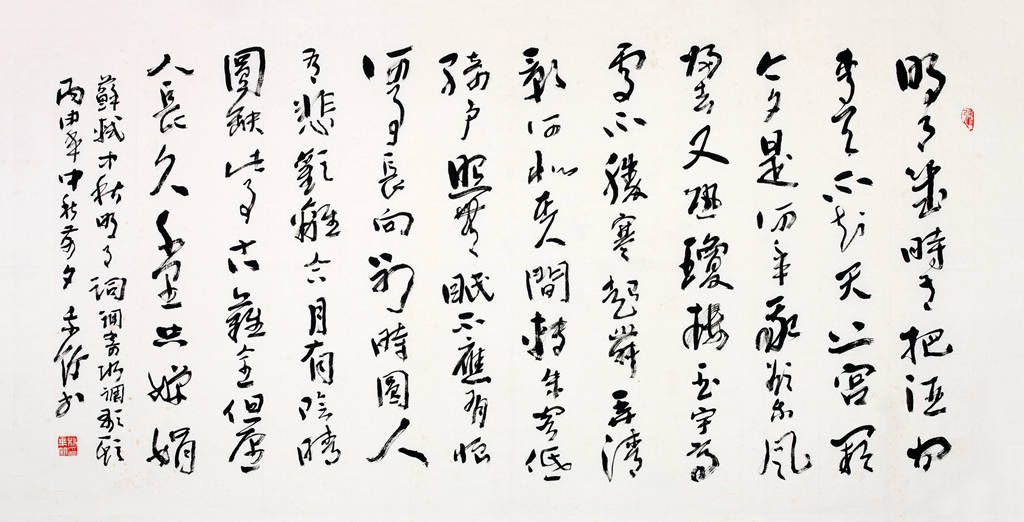 明月幾時有把酒問
青天不知天上宮闕
今夕是何年我欲乘風
歸去又恐瓊樓玉宇高
處不勝寒起舞弄清
影何似在人間轉朱閣低
綺戶照無眠不應有恨
何事長向別時圓人
有悲歡離合月有陰晴
圓缺此事古難全但願
人長久千里共嬋娟
蘇軾中秋明月詞調寄水調歌頭
丙申年中秋前夕書